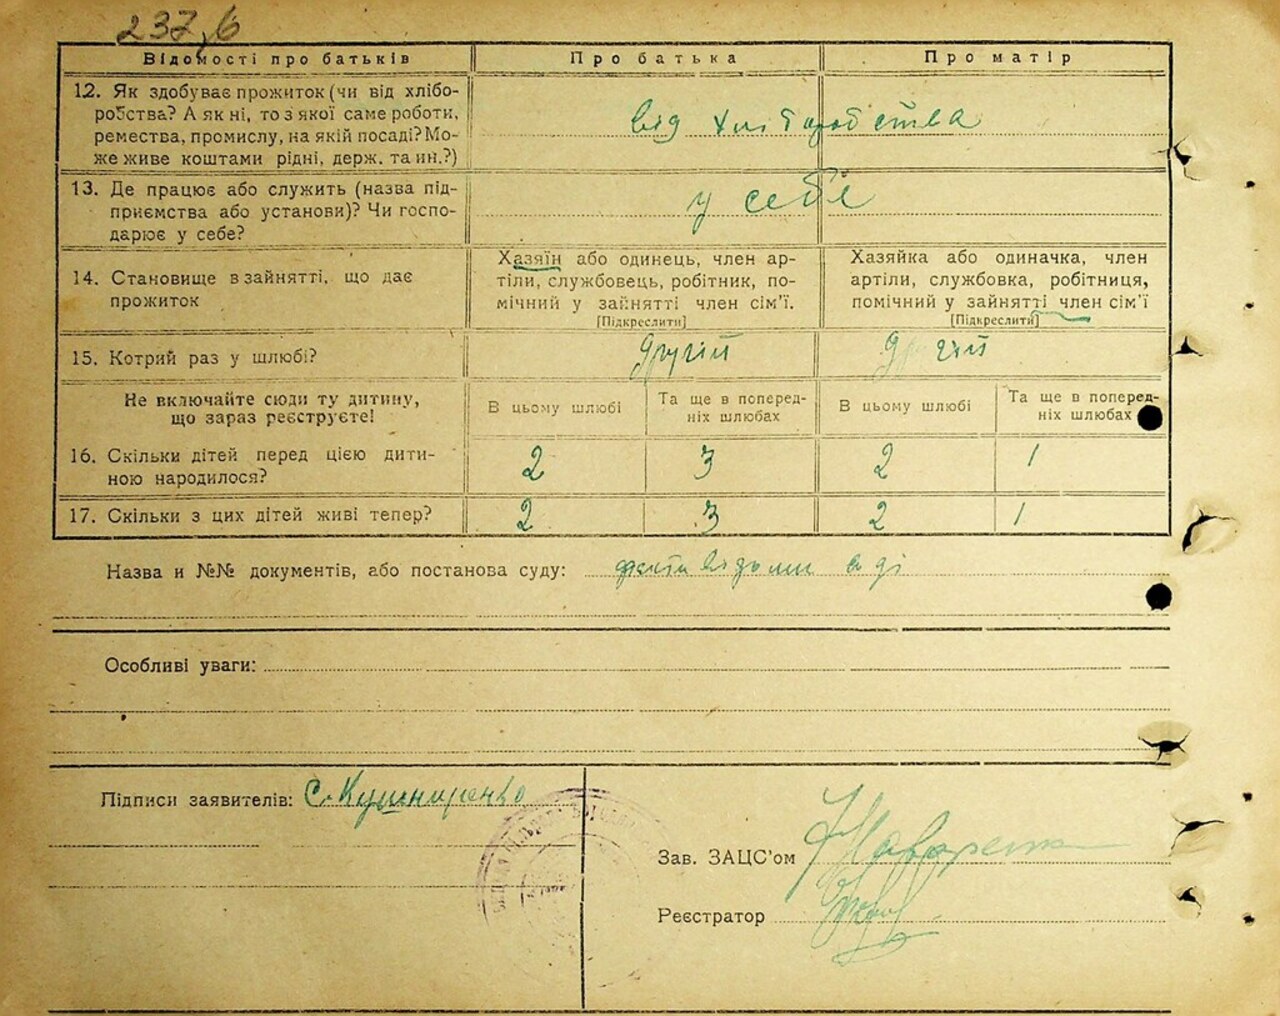 237,б
Відомості про батьків
Про батька
Про матір
12. Як здобуває прожиток (чи від хлібо-
робства? А як ні, то з якої саме роботи,
ремества, промислу, на якій посаді? Мо-
же живе коштами рідні, держ. та ин.?)
від хліборобства
13. Де працює або служить (назва під-
приємства або установи)? Чи госпо-
дарює у себе?
у себе
14. Становище в зайнятті, що дає
прожиток
Хазяїн або одинець, член ар-
тіли, службовець, робітник, по-
мічний у зайнятті член сім'ї.
[Підкреслити]
Хазяйка або одиначка, член
артіли, службовка, робітниця,
помічний у зайнятті член сім'ї
[Підкреслити]
15. Котрий раз у шлюбі?
другій
другій
Не включайте сюди ту дитину,
що зараз реєструєте!
В цьому шлюбі
Та ще в поперед-
ніх шлюбах
В цьому шлюбі
Та ще в поперед-
ніх шлюбах
16. Скільки дітей перед цією дити-
ною народилося?
2
3
2
1
17. Скільки з цих дітей живі тепер?
2
3
2
1
Назва и №№ документів, або постанова суду:
Особливі уваги:
Підписи заявителів: С. Кушниренко
Зав. ЗАЦС'ом
Реєстратор